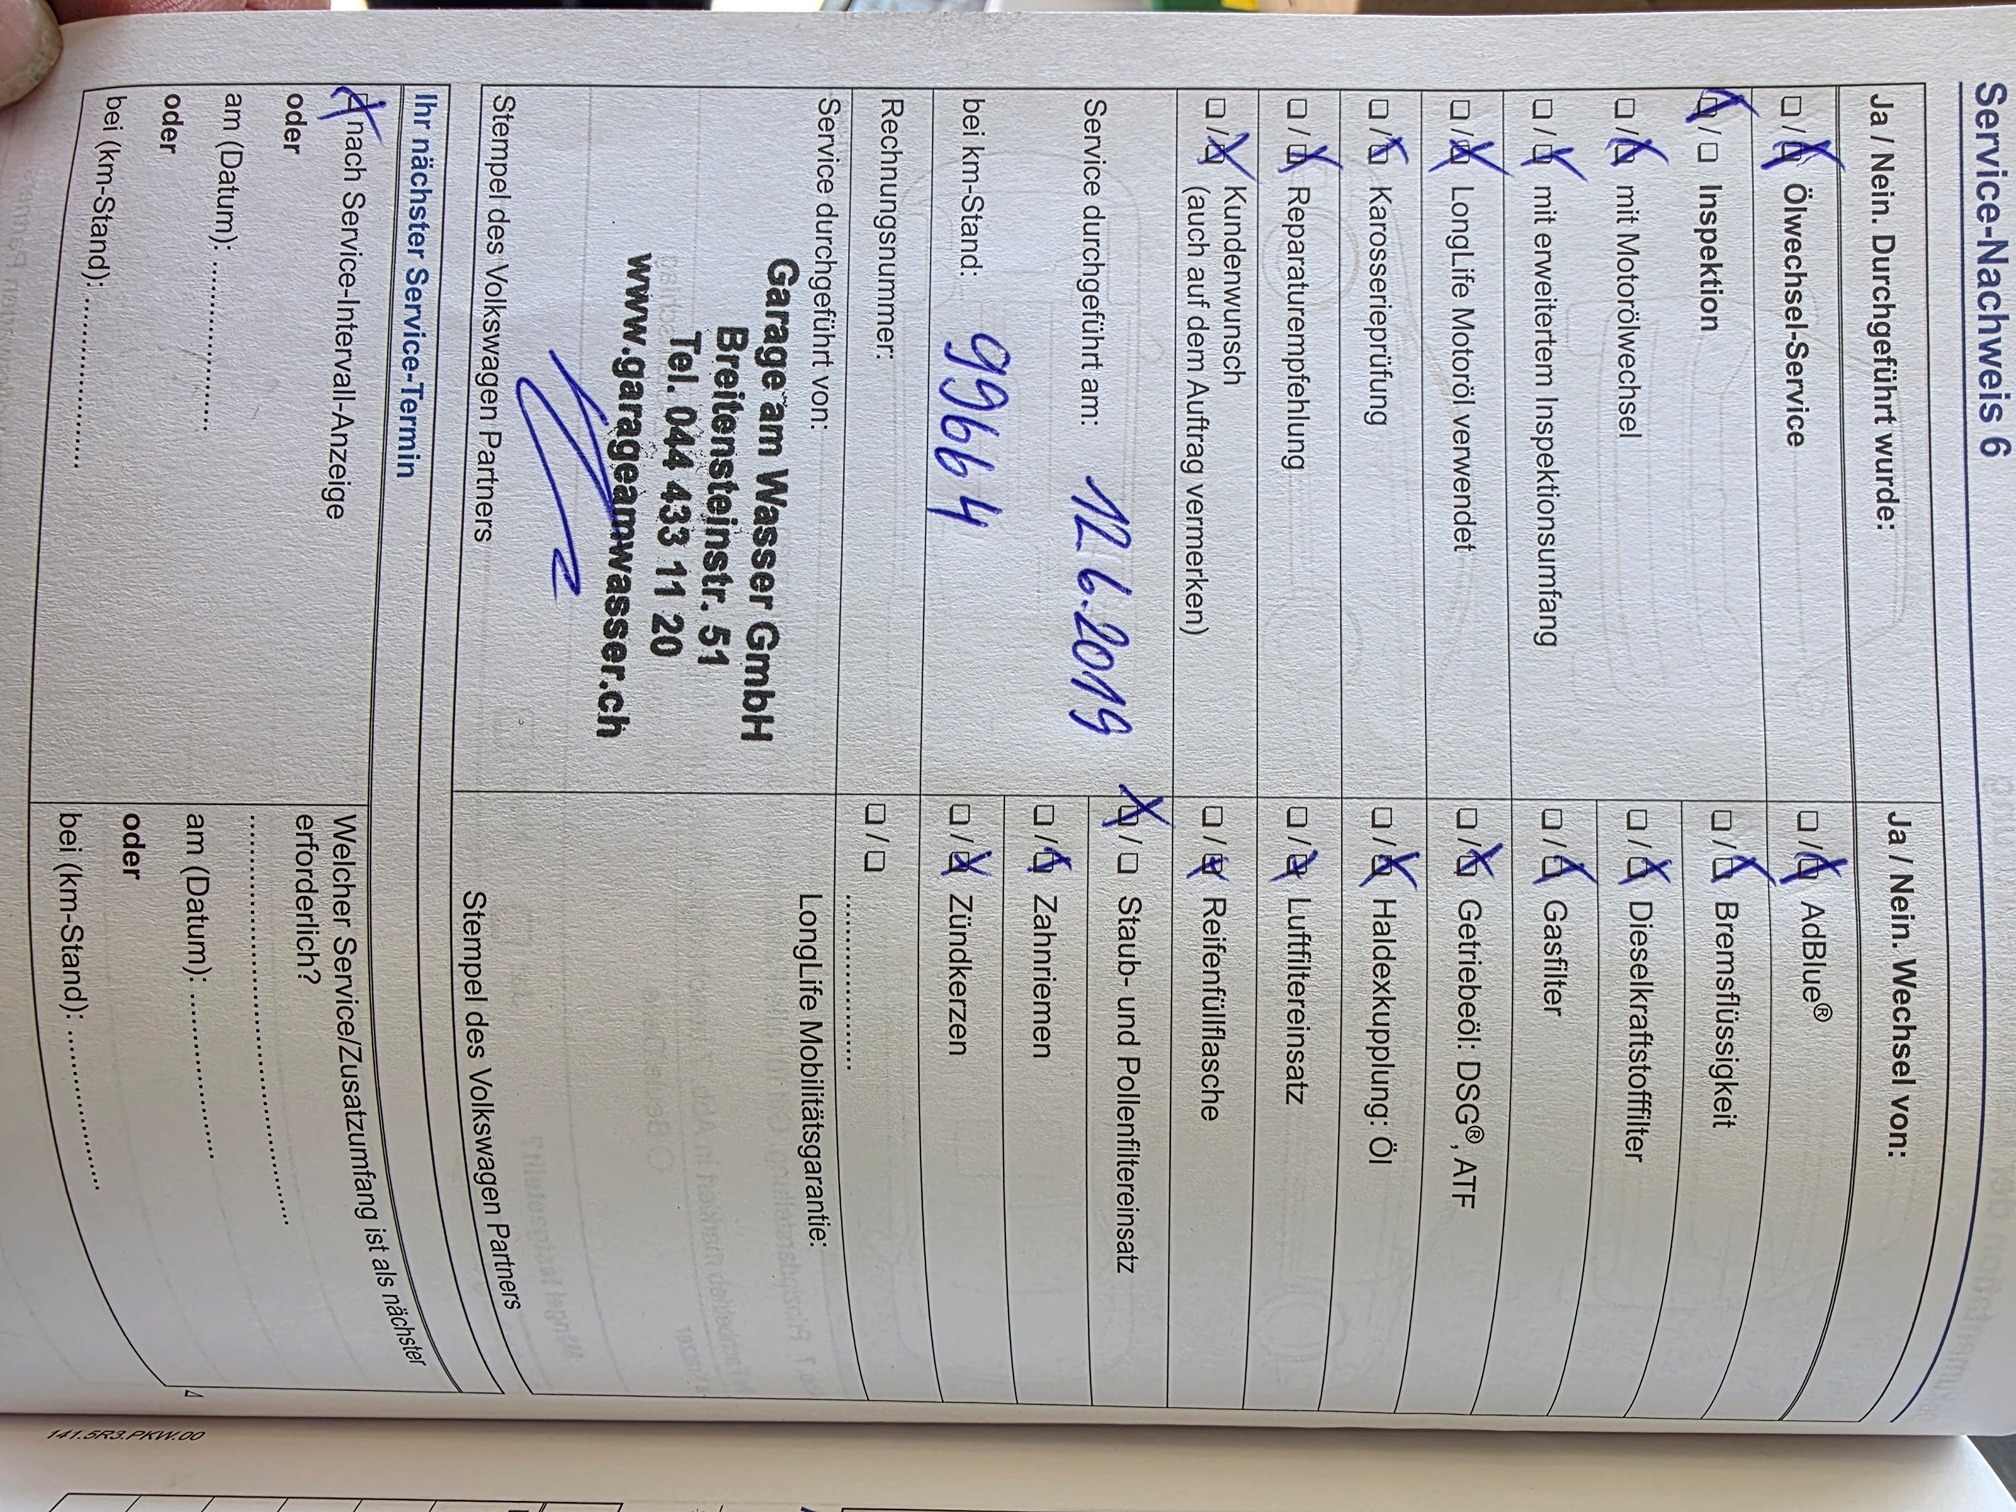 Service-Nachweis 6
Ja / Nein. Durchgeführt wurde:
☐/☒ Ölwechsel-Service
☒/☐ Inspektion
☐/☒ mit Motorölwechsel
☐/☒ mit erweitertem Inspektionsumfang
☐/☒ LongLife Motoröl verwendet
☐/☒ Karosserieprüfung
☐/☒ Reparaturempfehlung
☐/☒ Kundenwunsch
(auch auf dem Auftrag vermerken)
Service durchgeführt am: 12 6.2019
bei km-Stand: 99664
Rechnungsnummer:
Service durchgeführt von:
Garage am Wasser GmbH
Breitensteinstr. 51
Tel. 044 433 11 20
www.garageamwasser.ch
Stempel des Volkswagen Partners
Ja / Nein. Wechsel von:
☐/☒ AdBlue®
☐/☒ Bremsflüssigkeit
☐/☒ Dieselkraftstofffilter
☐/☒ Gasfilter
☐/☒ Getriebeöl: DSG®, ATF
☐/☒ Haldexkupplung: Öl
☐/☒ Luftfiltereinsatz
☐/☒ Reifenfüllflasche
☒/☐ Staub- und Pollenfiltereinsatz
☐/☒ Zahnriemen
☐/☒ Zündkerzen
☐/☐ ....................
LongLife Mobilitätsgarantie:
Stempel des Volkswagen Partners
Ihr nächster Service-Termin
☒ nach Service-Intervall-Anzeige
oder
am (Datum): ....................
oder
bei (km-Stand): ....................
Welcher Service/Zusatzumfang ist als nächster
erforderlich?
..................................................
am (Datum): ....................
oder
bei (km-Stand): ....................
141.5R3.PKW.00